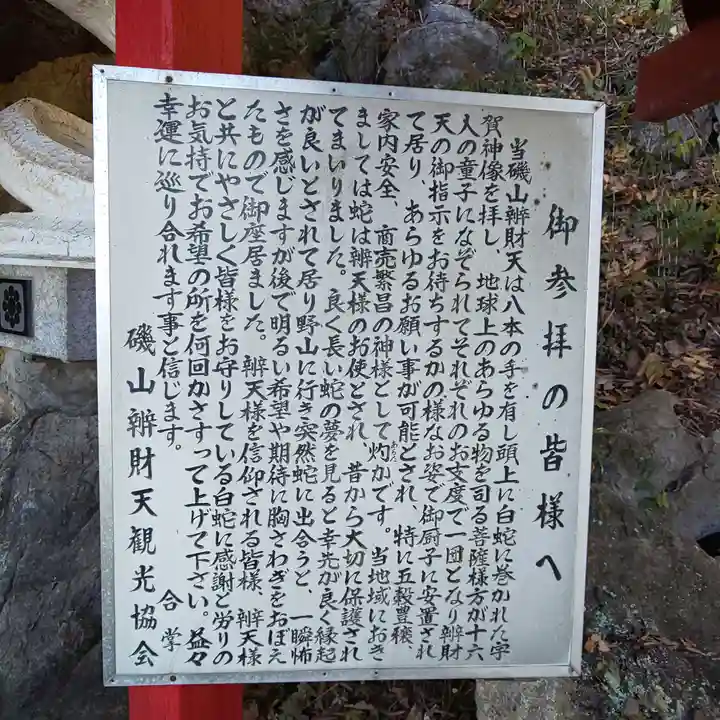 御参拝の皆様へ
当磯山辨財天は八本の手を有し頭上に白蛇に巻かれた宇
賀神像を拝し、地球上のあらゆる物を司る菩薩様方が十六
人の童子になぞられてそれぞれのお支度で一団となり辨財
天の御指示をお待ちするかの様なお姿で御厨子に安置され
て居り あらゆるお願い事が可能とされ、特に五穀豊穣、
家内安全、商売繁昌の神様として灼かです。当地域におき
ましては蛇は辨天様のお使とされ、昔から大切に保護され
てまいりました。良く長い蛇の夢を見ると幸先が良く縁起
が良いとされて居り野山に行き突然蛇に出合うと、一瞬怖
さを感じますが後で明るい希望や期待に胸さわぎをおぼえ
たもので御座居ました。辨天様を信仰される皆様、辨天様
と共にやさしく皆様をお守りしている白蛇に感謝と労りの
お気持でお希望の所を何回かさすって上げて下さい。益々
幸運に巡り合れます事と信じます。
合掌
磯山辨財天観光協会